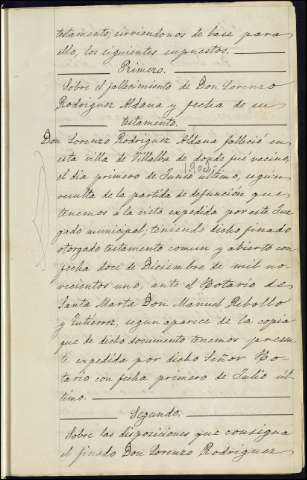 testamento, sirviendonos de base para
ello, los siguientes supuestos.
Primero.
Sobre el fallecimiento de Don Lorenzo
Rodriguez Aldana y fecha de su
testamento.
Don Lorenzo Rodriguez Aldana falleció en
esta villa de Villalba de donde fué vecino,
el dia primero de Junio último, segun
resulta de la partida de defunción que
tenemos á la vista expedida por este Juz-
gado municipal, teniendo dicho finado
otorgado testamento comun y abierto con
fecha doce de Diciembre de mil no-
vecientos uno, ante el Notario de
Santa Marta Don Manuel Rebollo
y Gutierrez, segun aparece de la copia
que de dicho documento tenemos presen-
te expedida por dicho Señor No-
tario con fecha primero de Julio úl-
timo.
Segundo.
Sobre las disposiciones que consigna
el finado Don Lorenzo Rodriguez